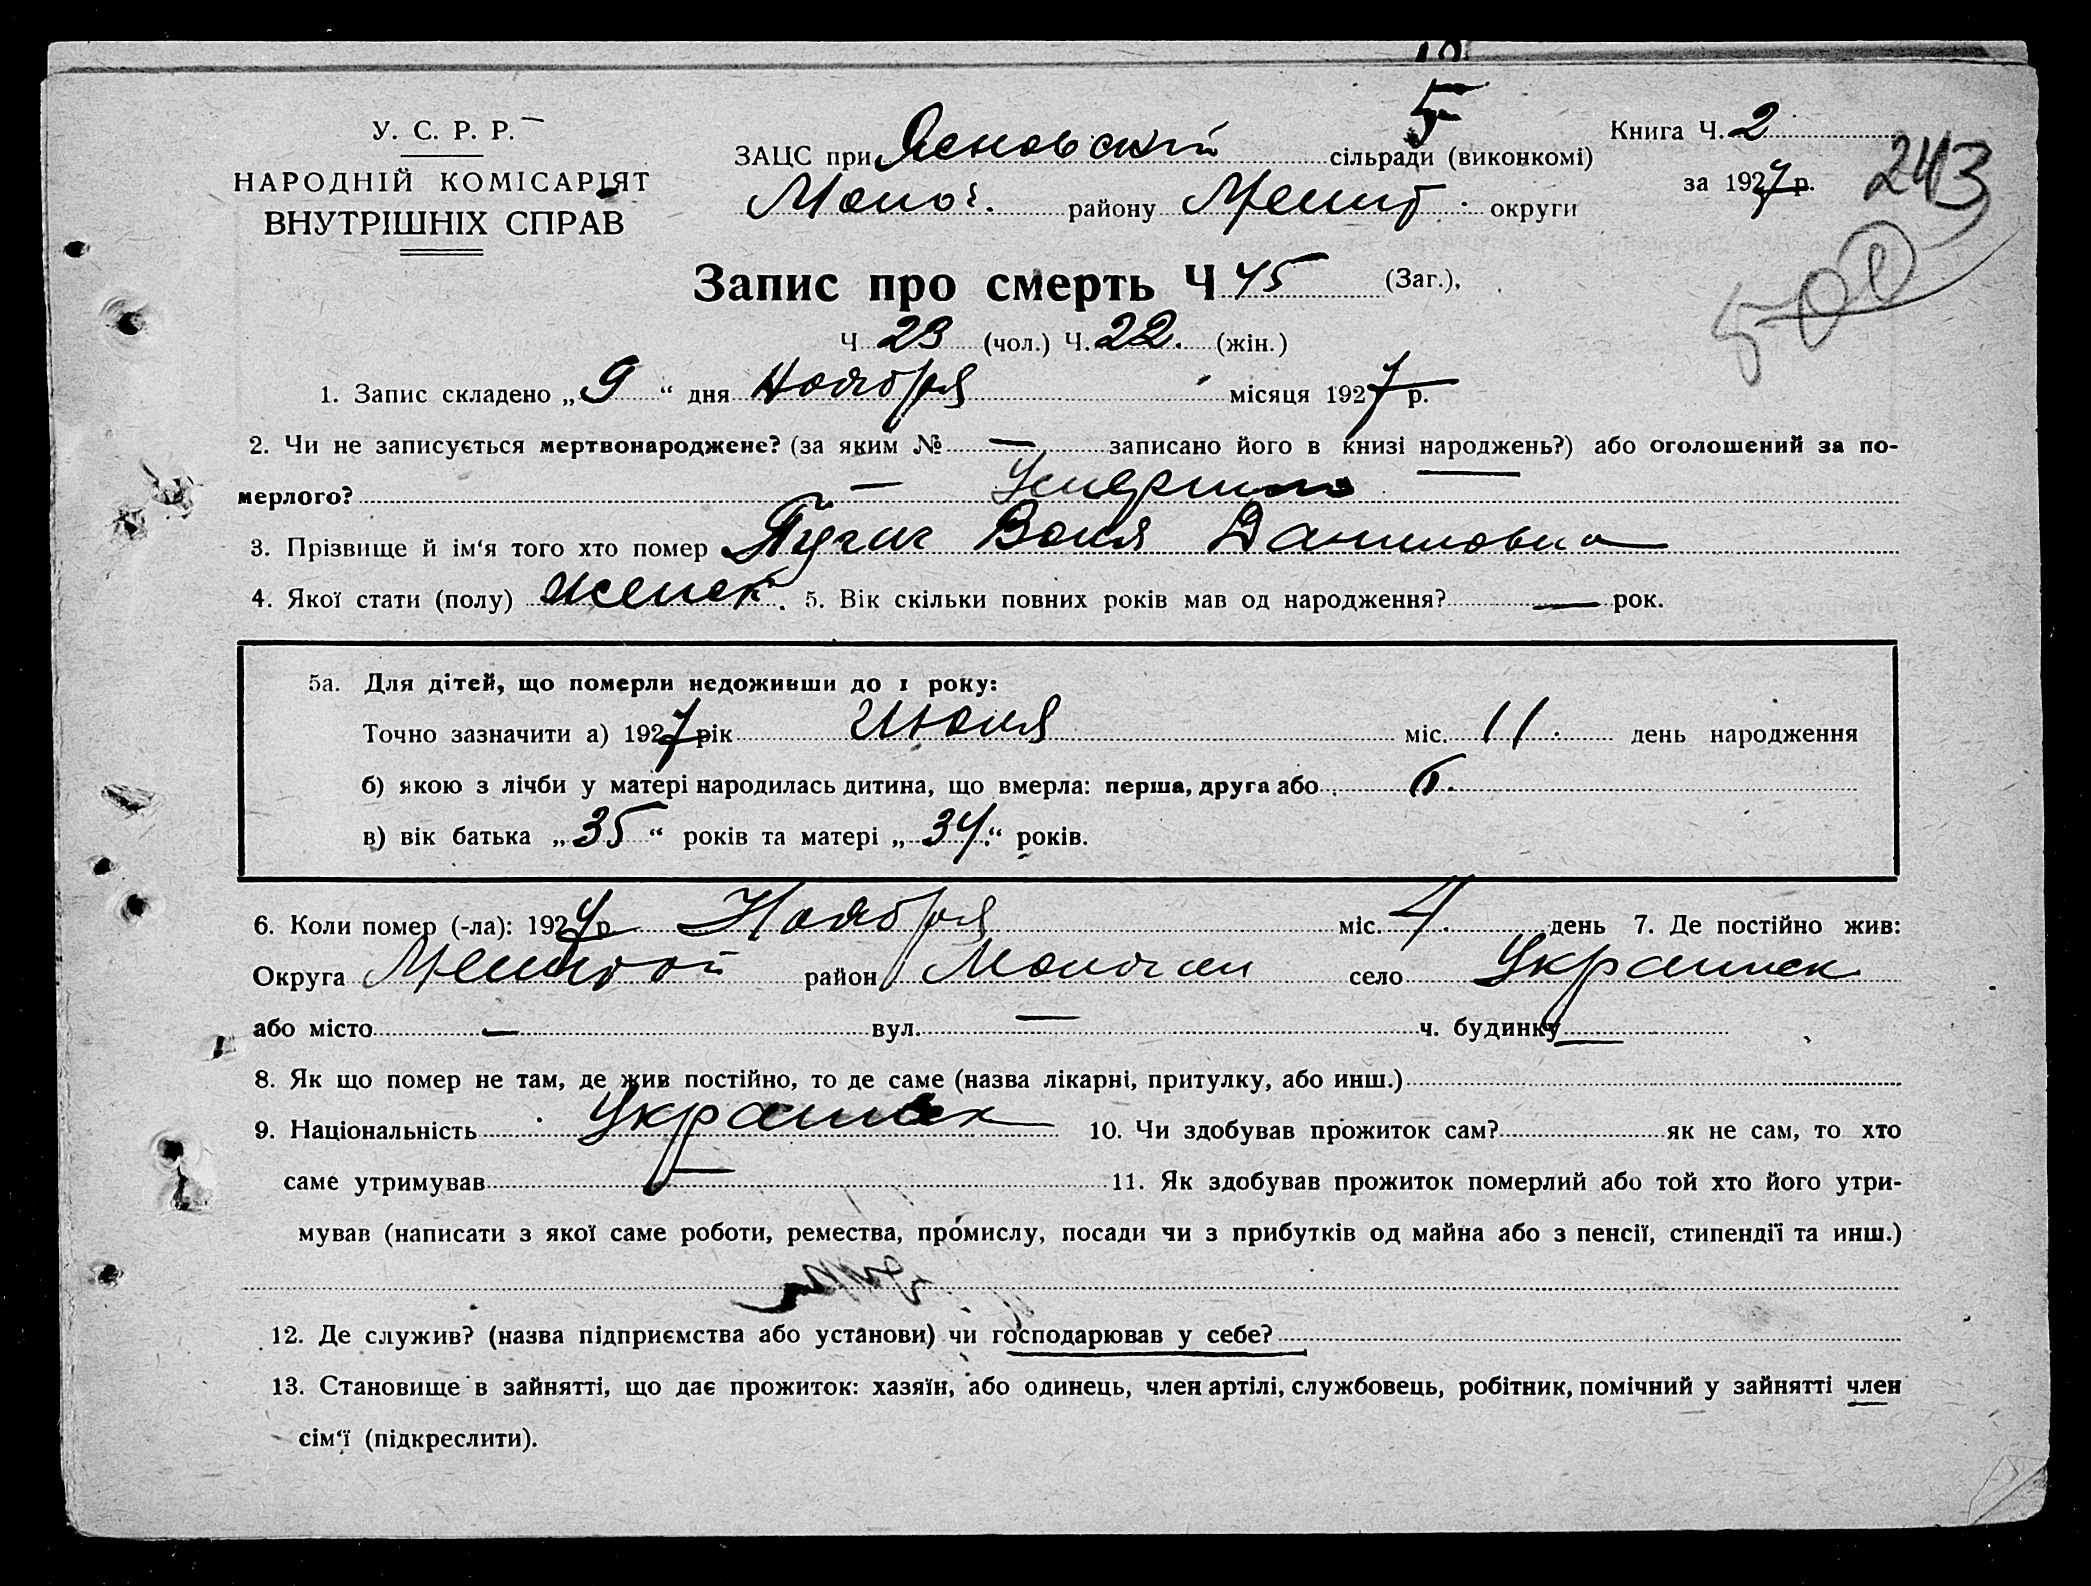 5
У. С. Р. Р.
НАРОДНІЙ КОМІСАРІЯТ
ВНУТРІШНІХ СПРАВ
ЗАЦС при Ясновскій сільради (виконкомі)
Молоч. району Мелит. округи
Книга Ч. 2
за 1927 р.
243
500
Запис про смерть Ч 45 (Заг.),
Ч 23 (чол.) Ч. 22. (жін.)
1. Запис складено „ 9 “ дня Ноября місяця 1927 р.
2. Чи не записується мертвонароджене? (за яким № — записано його в книзі народжень?) або оголошений за по-
мерлого? —
3. Прізвище й ім‘я того хто помер Пугач Даниловна
4. Якої стати (полу) женск. 5. Вік скільки повних років мав од народження? — рок.
5а. Для дітей, що померли недоживши до 1 року:
Точно зазначити а) 1927 рік Июля міс. 11. день народження
б) якою з лічби у матері народилась дитина, що вмерла: перша, друга або
в) вік батька „ 35 “ років та матері „ 34 “ років.
6. Коли помер (-ла): 1927 р. Ноября міс. 4. день 7. Де постійно жив:
Округа район Молочан село
або місто — вул. — ч. будинку —
8. Як що помер не там, де жив постійно, то де саме (назва лікарні, притулку, або инш.)
9. Національність Украинск 10. Чи здобував прожиток сам? як не сам, то хто
саме утримував — 11. Як здобував прожиток померлий або той хто його утри-
мував (написати з якої саме роботи, ремества, промислу, посади чи з прибутків од майна або з пенсії, стипендії та инш.)
12. Де служив? (назва підприємства або установи) чи господарював у себе?
13. Становище в зайнятті, що дає прожиток: хазяїн, або одинець, член артілі, службовець, робітник, помічний у зайнятті член
сім‘ї (підкреслити).